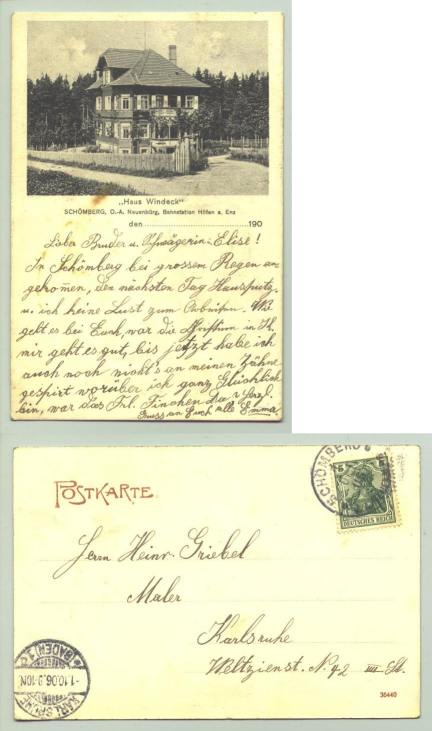 „Haus Windeck"
SCHÖMBERG, O.-A. Neuenbürg, Bahnstation Höfen a. Enz
den 190
Lieber Bruder u. Schwägerin Elise!
In Schömberg bei grossem Regen an-
gekom̄en, den nächsten Tag Hausputz,
u. ich keine Lust zum
geht es bei Euch, war die in K.
mir geht es gut, bis jetzt habe ich
auch noch nichts an meinen Zähne
gespürt worüber ich ganz Glücklich
bin, war das Frl. Finchen da?
Gruss an Euch alle Emma
POSTKARTE
SCHÖMBERG
5
DEUTSCHES REICH
Herrn Heinr. Griebel
Maler
Karlsruhe
Weltzienst. N. 42 III St.
KARLSRUHE
-1.10.06.9-10N.
(BADEN)
36440